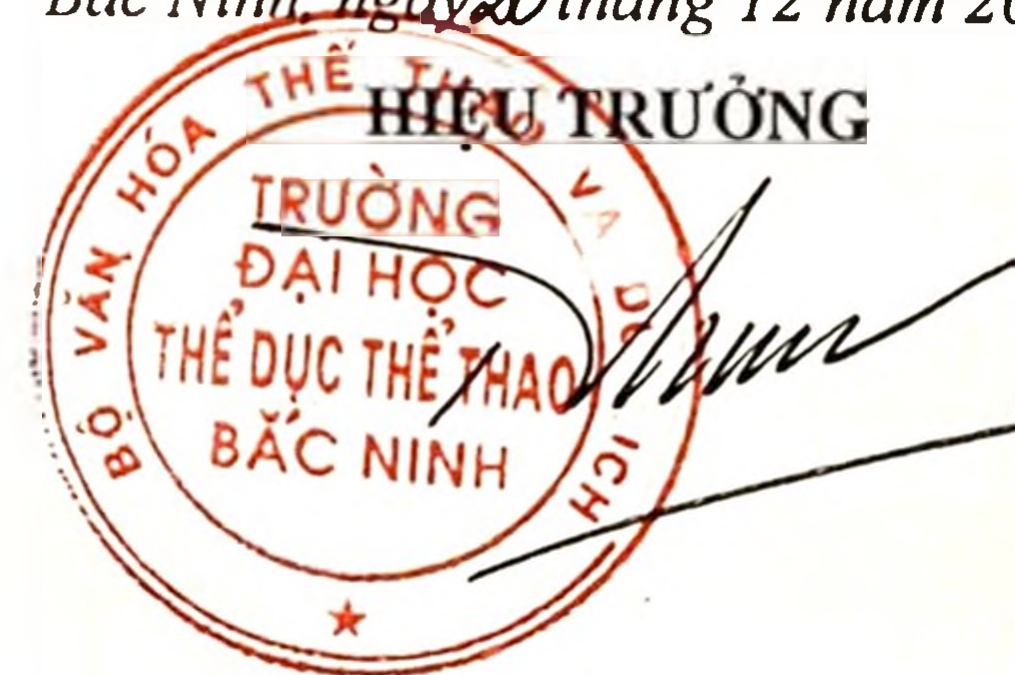 Bắc Ninh, ngày 20 tháng 12 năm 20
HIỆU TRƯỞNG
BỘ VĂN HÓA THỂ THAO VÀ DU LỊCH
TRƯỜNG
ĐẠI HỌC
THỂ DỤC THỂ THAO
BẮC NINH